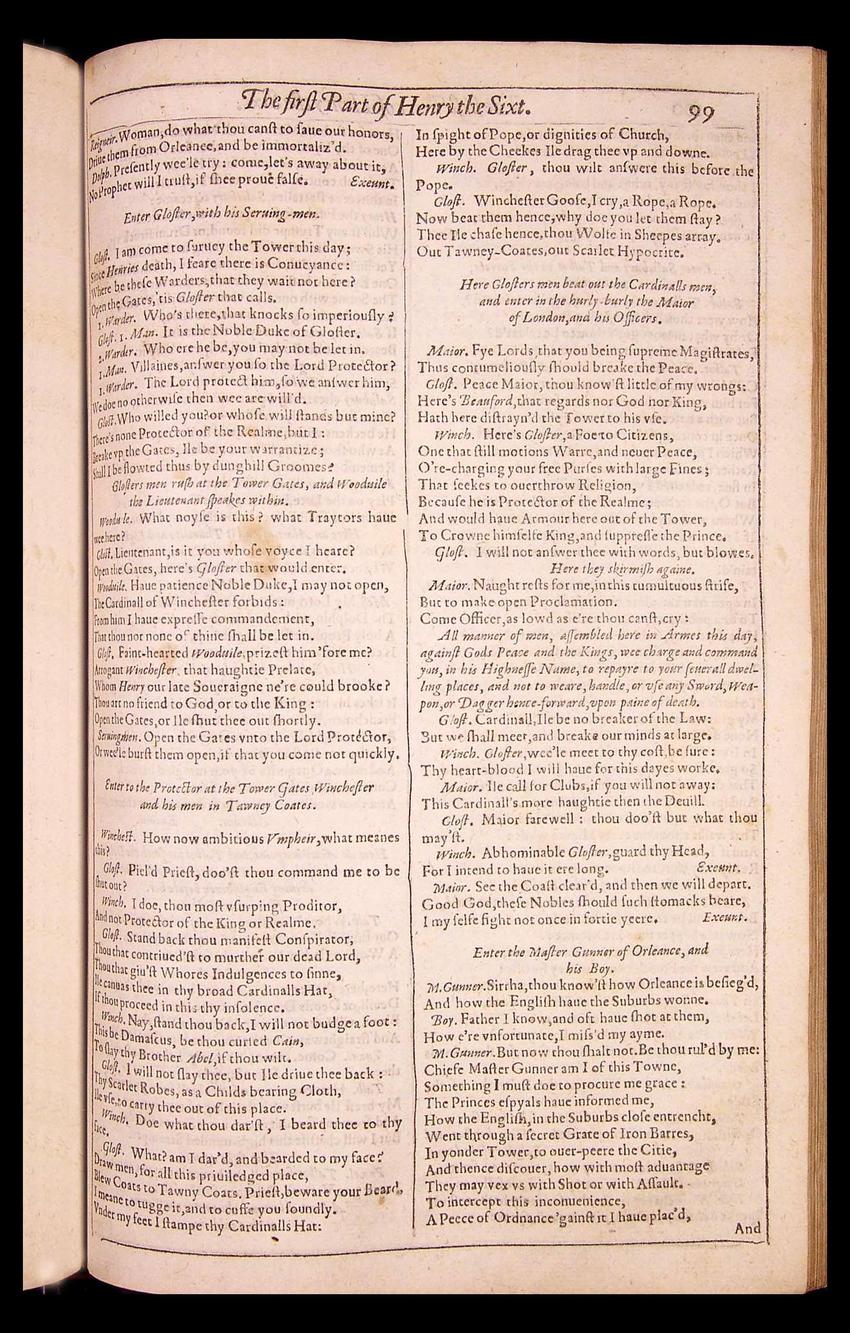 The first Part of Henry the Sixt.
99
Reigneir. Woman, do what thou canst to saue our honors,
Driue them from Orleance, and be immortaliz'd.
Dolph. Presently wee'le try: come, let's away about it,
No Prophet will I trust, if shee proue false. Exeunt.
Enter Gloster, with his Seruing-men.
Glost. I am come to suruey the Tower this day;
Since Henries death, I feare there is Conueyance:
Where be these Warders, that they wait not here?
Open the Gates, 'tis Gloster that calls.
1. Warder. Who's there, that knocks so imperiously?
Glost. 1. Man. It is the Noble Duke of Gloster.
2. Warder. Who ere he be, you may not be let in.
1. Man. Villaines, answer you so the Lord Protector?
1. Warder. The Lord protect him, so we answer him,
We doe no otherwise then wee are will'd.
Glost. Who willed you? or whose will stands but mine?
There's none Protector of the Realme, but I:
Breake vp the Gates, Ile be your warrantize;
Shall I be flowted thus by dunghill Groomes?
Glosters men rush at the Tower Gates, and Wooduile
the Lieutenant speakes within.
Wooduile. What noyse is this? what Traytors haue
wee here?
Glost. Lieutenant, is it you whose voyce I heare?
Open the Gates, here's Gloster that would enter.
Wooduile. Haue patience Noble Duke, I may not open,
The Cardinall of Winchester forbids:
From him I haue expresse commandement,
That thou nor none of thine shall be let in.
Glost. Faint-hearted Wooduile, prizest him 'fore me?
Arrogant Winchester, that haughtie Prelate,
Whom Henry our late Soueraigne ne're could brooke?
Thou art no friend to God, or to the King:
Open the Gates, or Ile shut thee out shortly.
Seruingmen. Open the Gates vnto the Lord Protector,
Or wee'le burst them open, if that you come not quickly.
Enter to the Protector at the Tower Gates Winchester
and his men in Tawney Coates.
Winchest. How now ambitious Vmpheir, what meanes
this?
Glost. Piel'd Priest, doo'st thou command me to be
shut out?
Winch. I doe, thou most vsurping Proditor,
And not Protector of the King or Realme.
Glost. Stand back thou manifest Conspirator,
Thou that contriued'st to murther our dead Lord,
Thou that giu'st Whores Indulgences to sinne,
Ile canuas thee in thy broad Cardinalls Hat,
If thou proceed in this thy insolence.
Winch. Nay, stand thou back, I will not budge a foot:
This be Damascus, be thou cursed Cain,
To slay thy Brother Abel, if thou wilt.
Glost. I will not slay thee, but Ile driue thee back:
Thy Scarlet Robes, as a Childs bearing Cloth,
Ile vse, to carry thee out of this place.
Winch. Doe what thou dar'st, I beard thee to thy
face.
Glost. What? am I dar'd, and bearded to my face?
Draw men, for all this priuiledged place,
Blew Coats to Tawny Coats. Priest, beware your Beard,
I meane to tugge it, and to cuffe you soundly.
Vnder my feet I stampe thy Cardinalls Hat:
In spight of Pope, or dignities of Church,
Here by the Cheekes Ile drag thee vp and downe.
Winch. Gloster, thou wilt answere this before the
Pope.
Glost. Winchester Goose, I cry, a Rope, a Rope.
Now beat them hence, why doe you let them stay?
Thee Ile chase hence, thou Wolfe in Sheepes array.
Out Tawney-Coates, out Scarlet Hypocrite.
Here Glosters men beat out the Cardinalls men,
and enter in the hurly-burly the Maior
of London, and his Officers.
Maior. Fye Lords, that you being supreme Magistrates,
Thus contumeliously should breake the Peace.
Glost. Peace Maior, thou know'st little of my wrongs:
Here's Beauford, that regards nor God nor King,
Hath here distrayn'd the Tower to his vse.
Winch. Here's Gloster, a Foe to Citizens,
One that still motions Warre, and neuer Peace,
O're-charging your free Purses with large Fines;
That seekes to ouerthrow Religion,
Because he is Protector of the Realme;
And would haue Armour here out of the Tower,
To Crowne himselfe King, and suppresse the Prince.
Glost. I will not answer thee with words, but blowes.
Here they skirmish againe.
Maior. Naught rests for me, in this tumultuous strife,
But to make open Proclamation.
Come Officer, as lowd as e're thou canst, cry:
All manner of men, assembled here in Armes this day,
against Gods Peace and the Kings, wee charge and command
you, in his Highnesse Name, to repayre to your seuerall dwel-
ling places, and not to weare, handle, or vse any Sword, Wea-
pon, or Dagger hence-forward, vpon paine of death.
Glost. Cardinall, Ile be no breaker of the Law:
But we shall meet, and breake our minds at large.
Winch. Gloster, wee'le meet to thy cost, be sure:
Thy heart-blood I will haue for this dayes worke.
Maior. Ile call for Clubs, if you will not away:
This Cardinall's more haughtie then the Deuill.
Glost. Maior farewell: thou doo'st but what thou
may'st.
Winch. Abhominable Gloster, guard thy Head,
For I intend to haue it ere long. Exeunt.
Maior. See the Coast clear'd, and then we will depart.
Good God, these Nobles should such stomacks beare,
I my selfe fight not once in fortie yeere. Exeunt.
Enter the Master Gunner of Orleance, and
his Boy.
M. Gunner. Sirrha, thou know'st how Orleance is besieg'd,
And how the English haue the Suburbs wonne.
Boy. Father I know, and oft haue shot at them,
How e're vnfortunate, I miss'd my ayme.
M. Gunner. But now thou shalt not. Be thou rul'd by me:
Chiefe Master Gunner am I of this Towne,
Something I must doe to procure me grace:
The Princes espyals haue informed me,
How the English, in the Suburbs close entrencht,
Went through a secret Grate of Iron Barres,
In yonder Tower, to ouer-peere the Citie,
And thence discouer, how with most aduantage
They may vex vs with Shot or with Assault.
To intercept this inconuenience,
A Peece of Ordnance 'gainst it I haue plac'd,
And